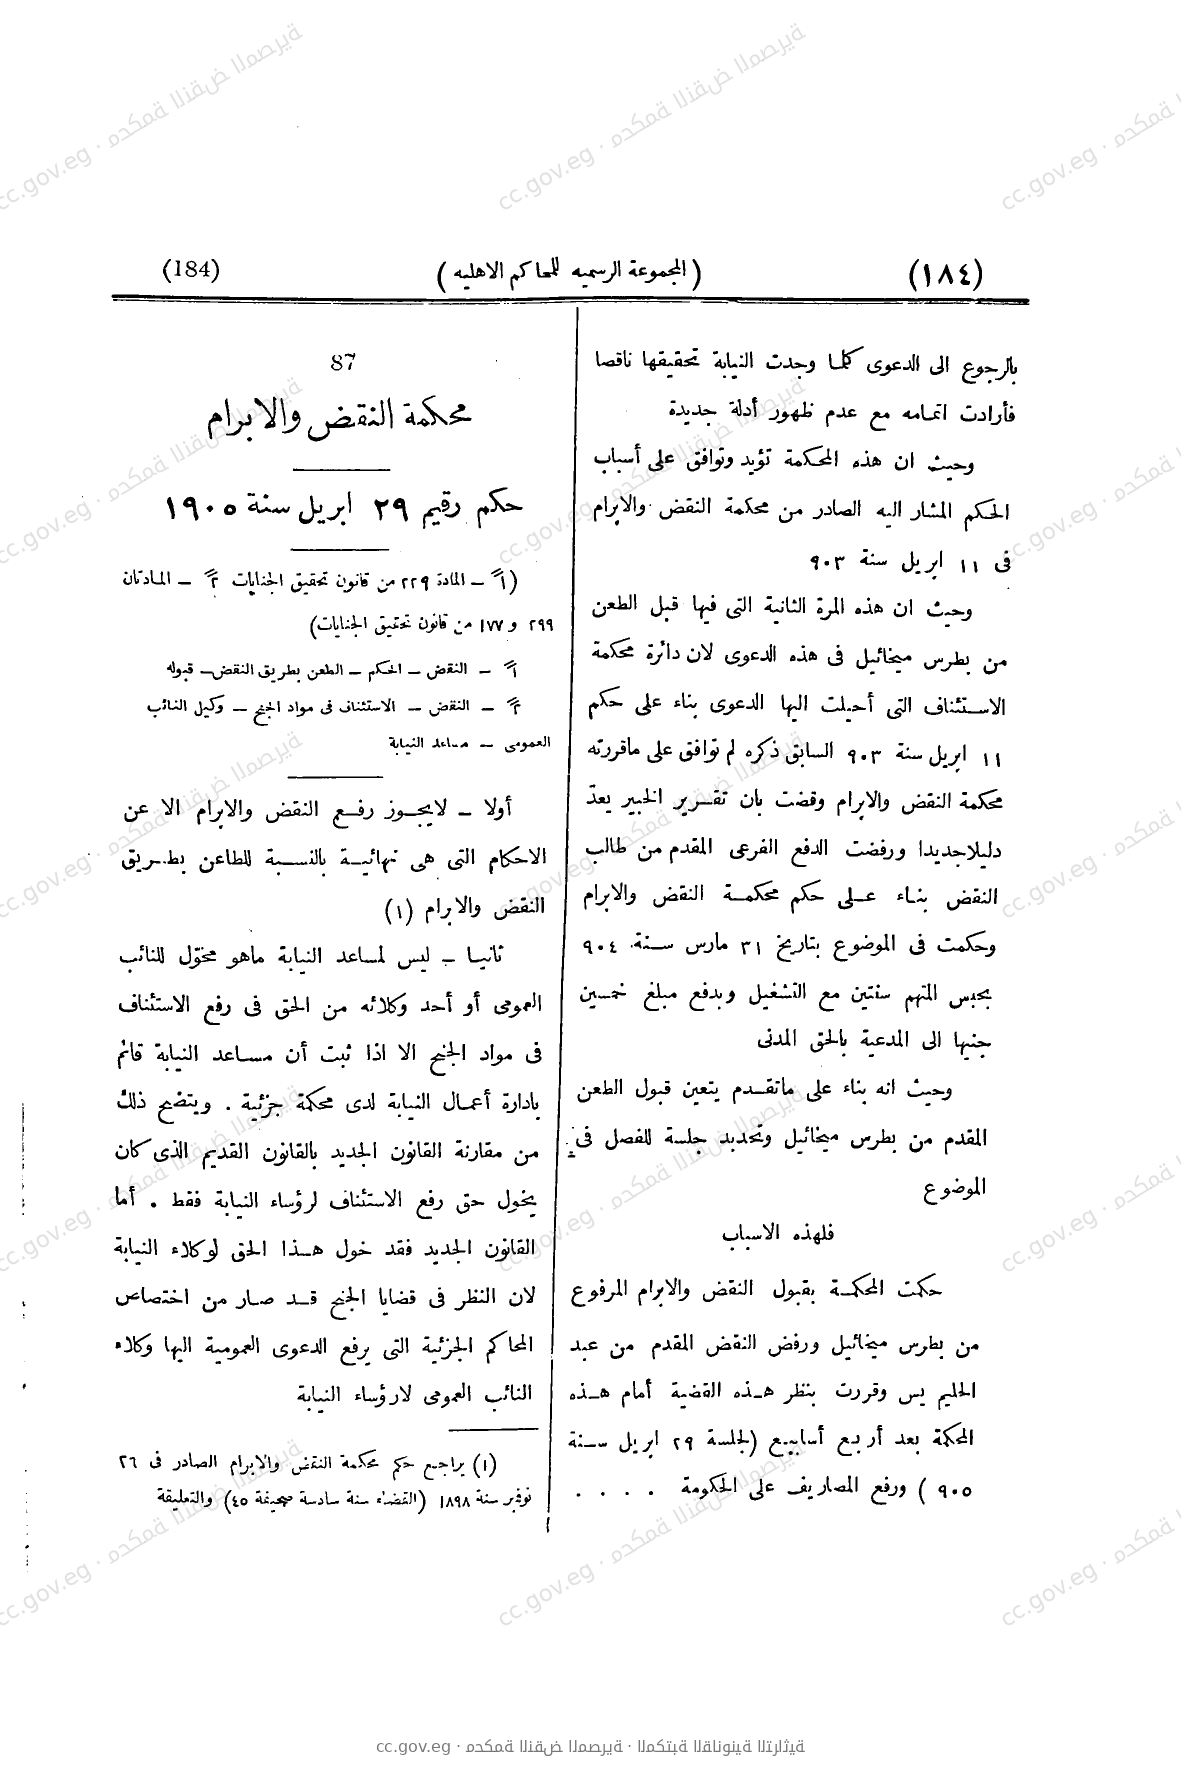 (١٨٤) (المجموعة الرسميه للمحاكم الاهليه) (184)
بالرجوع الى الدعوى كلما وجدت النيابة تحقيقها ناقصا
فأرادت اتمامه مع عدم ظهور أدلة جديدة
وحيث ان هذه المحكمة تؤيد وتوافق على أسباب
الحكم المشار اليه الصادر من محكمة النقض والابرام
فى ١١ ابريل سنة ٩٠٣
وحيث ان هذه المرة الثانية التى فيها قبل الطعن
من بطرس ميخائيل فى هذه الدعوى لان دائرة محكمة
الاستئناف التى أحيلت اليها الدعوى بناء على حكم
١١ ابريل سنة ٩٠٣ السابق ذكره لم توافق على ماقررته
محكمة النقض والابرام وقضت بان تقرير الخبير يعدّ
دليلا جديدا ورفضت الدفع الفرعى المقدم من طالب
النقض بناء على حكم محكمة النقض والابرام
وحكمت فى الموضوع بتاريخ ٣١ مارس سنة ٩٠٤
بحبس المتهم سنتين مع التشغيل وبدفع مبلغ خمسين
جنيها الى المدعية بالحق المدنى
وحيث انه بناء على ماتقدم يتعين قبول الطعن
المقدم من بطرس ميخائيل وتحديد جلسة للفصل فى
الموضوع
فلهذه الاسباب
حكمت المحكمة بقبول النقض والابرام المرفوع
من بطرس ميخائيل ورفض النقض المقدم من عبد
الحليم يس وقررت بنظر هذه القضية أمام هذه
المحكمة بعد أربع أسابيع (لجلسة ٢٩ ابريل سنة
٩٠٥) ورفع المصاريف على الحكومة . . . .
87
محكمة النقض والابرام
حكم رقيم ٢٩ ابريل سنة ١٩٠٥
(١ً – المادة ٢٢٩ من قانون تحقيق الجنايات ٢ً – المادتان
٢٩٩ و ١٧٧ من قانون تحقيق الجنايات)
١ً – النقض – الحكم – الطعن بطريق النقض – قبوله
٢ً – النقض – الاستئناف فى مواد الجنح – وكيل النائب
العمومى – مساعد النيابة
أولا – لايجوز رفع النقض والابرام الا عن
الاحكام التى هى نهائية بالنسبة للطاعن بطريق
النقض والابرام (١)
ثانيا – ليس لمساعد النيابة ماهو مخوّل للنائب
العمومى أو أحد وكلائه من الحق فى رفع الاستئناف
فى مواد الجنح الا اذا ثبت أن مساعد النيابة قائم
بادارة أعمال النيابة لدى محكمة جزئية . ويتضح ذلك
من مقارنة القانون الجديد بالقانون القديم الذى كان
يخول حق رفع الاستئناف لرؤساء النيابة فقط . أما
القانون الجديد فقد خول هذا الحق لوكلاء النيابة
لان النظر فى قضايا الجنح قد صار من اختصاص
المحاكم الجزئية التى يرفع الدعوى العمومية اليها وكلاء
النائب العمومى لا رؤساء النيابة
(١) يراجع حكم محكمة النقض والابرام الصادر فى ٢٦
نوفمبر سنة ١٨٩٨ (القضاء سنة سادسة صحيفة ٤٥) والتعليقة
cc.gov.eg · محكمة النقض المصرية · المكتبة القانونية التراثية